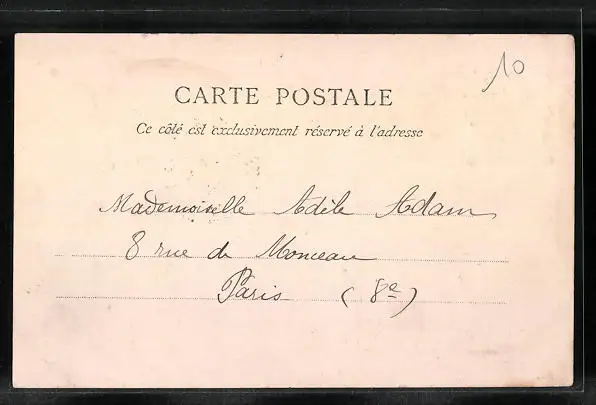 10
CARTE POSTALE
Ce côté est exclusivement réservé à l'adresse
Mademoiselle Adèle Adam
8 rue de Monceau
Paris (8e)